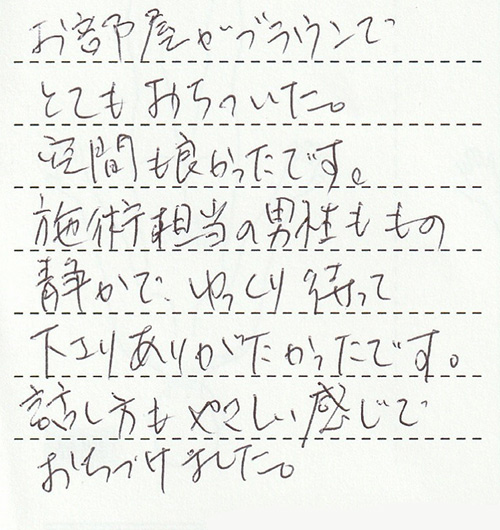 お部屋がブラウンで
とてもおちついた。
空間も良かったです。
施術担当の男性ももの
静かで、ゆっくり待って
下さりありがたかったです。
話し方もやさしい感じで
おちづけました。